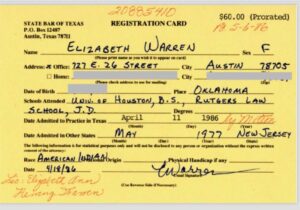 20885410
STATE BAR OF TEXAS
P.O. Box 12487
Austin, Texas 78711
REGISTRATION CARD
$60.00 (Prorated)
Pd 5-6-86
Name ELIZABETH WARREN Sex F
(Please print name as you wish it to appear on card)
Address: Office: 727 E. 26 STREET AUSTIN 78705
Home:
(Check address to use for mailing)
Date of Birth Place OKLAHOMA
Schools Attended UNIV. OF HOUSTON, B.S., RUTGERS LAW
SCHOOL, J.D.
Date Admitted to Practice in Texas April 11 1986 by Motion
Date Admitted in Other States MAY 1977 NEW JERSEY
The following information is for statistical purposes only and will not be disclosed to any person or organization without the express written consent of the attorney:
Race AMERICAN INDIAN National Origin Physical Handicap if any
Date 4/18/86 EWarren
(Use Reverse Side if Necessary)
Elizabeth Ann